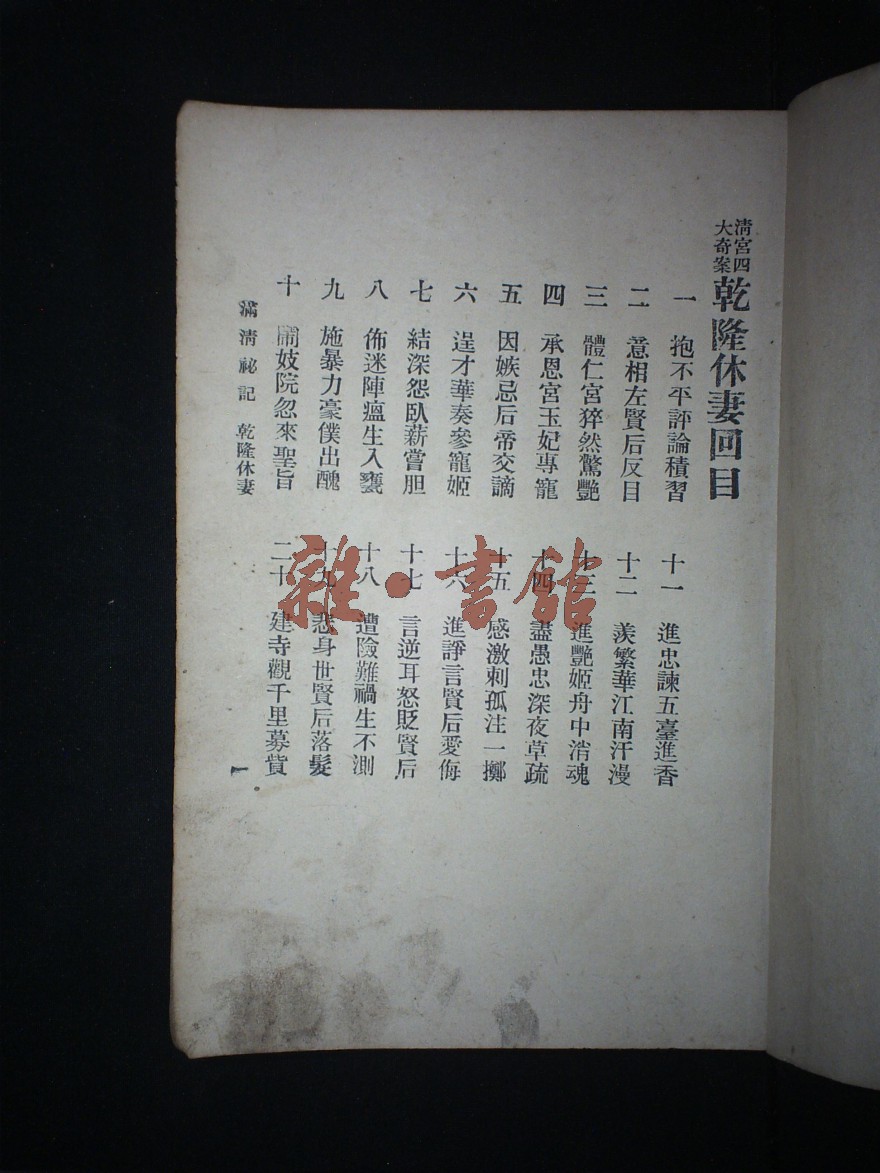 清宮四大奇案
乾隆休妻回目
一 抱不平評論積習
二 意相左賢后反目
三 體仁宮猝然驚艷
四 承恩宮玉妃專寵
五 因嫉忌后帝交謫
六 逞才華奏參寵姬
七 結深怨臥薪嘗胆
八 佈迷陣瘟生入甕
九 施暴力豪僕出醜
十 鬧妓院忽來聖旨
十一 進忠諫五臺進香
十二 羨繁華江南汗漫
十三 進艷姬舟中消魂
十四 盡愚忠深夜草疏
十五 感激刺孤注一擲
十六 進諍言賢后受侮
十七 言逆耳怒貶賢后
十八 遭險難禍生不測
十九 悲身世賢后落髮
二十 建寺觀千里募貲
滿淸祕記 乾隆休妻
一
雜·書館